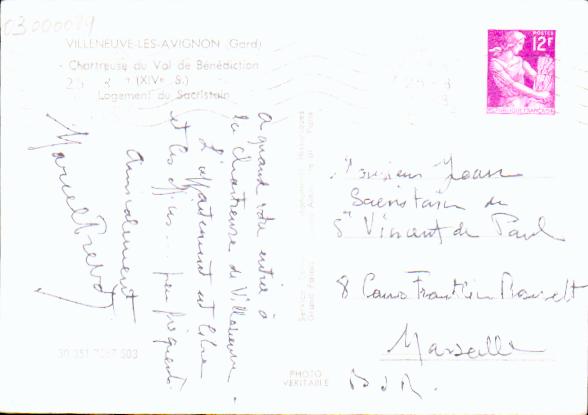 03000024
VILLENEUVE-LES-AVIGNON (Gard)
Chartreuse du Val de Bénédiction
(XIVe S.)
Logement du Sacristain
POSTES
12F
REPUBLIQUE FRANÇAISE
A quand votre entrée à
la Chartreuse de Villeneuve.
L'appartement est libre
et les offices... peu fréquentés.
Amicalement
Marcel
Monsieur Jean
Sacristain de
St Vincent de Paul
8 Cours Franklin Roosevelt
Marseille
B. d. R.
30 351 7087 S03
PHOTO
VERITABLE